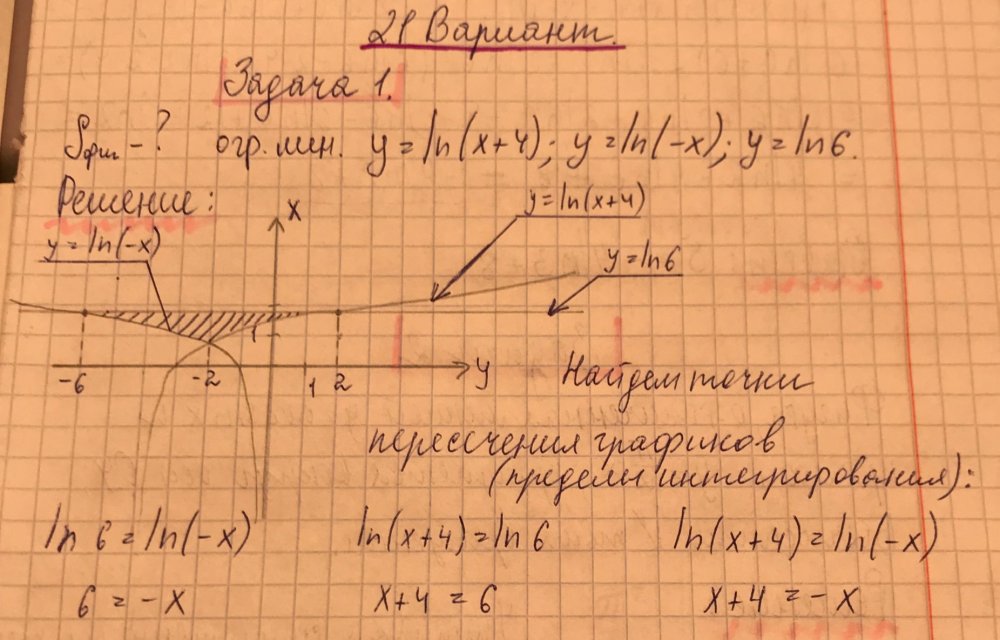 21 Вариант.
Задача 1.
Sфиг - ? огр. лин. y = ln(x+4); y = ln(-x); y = ln6.
Решение:
x
y = ln(x+4)
y = ln(-x)
y = ln6
1
-6 -2 1 2 y
Найдем точки
пересечения графиков
(пределы интегрирования):
ln 6 = ln(-x) ln(x+4) = ln 6 ln(x+4) = ln(-x)
6 = -x x+4 = 6 x+4 = -x